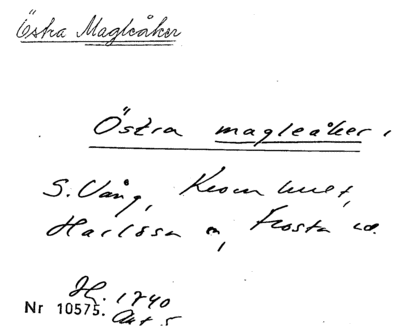 Östra Magleåker
Östra magleåker,
S. Vång, Kromhult,
Harlösa sn, Frosta hd.
H. 1740
Nr 10575. Akt 5